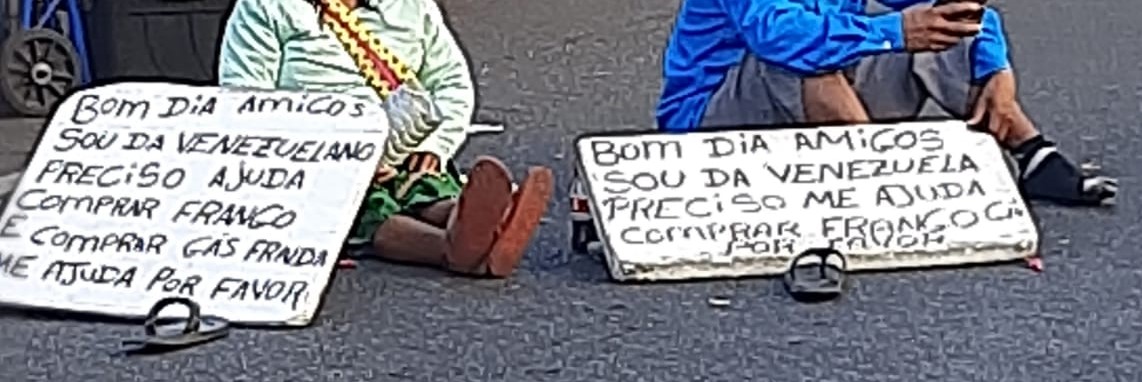 BOM DIA AMIGOS
SOU DA VENEZUELANO
PRECISO AJUDA
COMPRAR FRANGO
E COMPRAR GÁS FRNDA
ME AJUDA POR FAVOR
BOM DIA AMIGOS
SOU DA VENEZUELA
PRECISO ME AJUDA
COMPRAR FRANGO
POR FAVOR